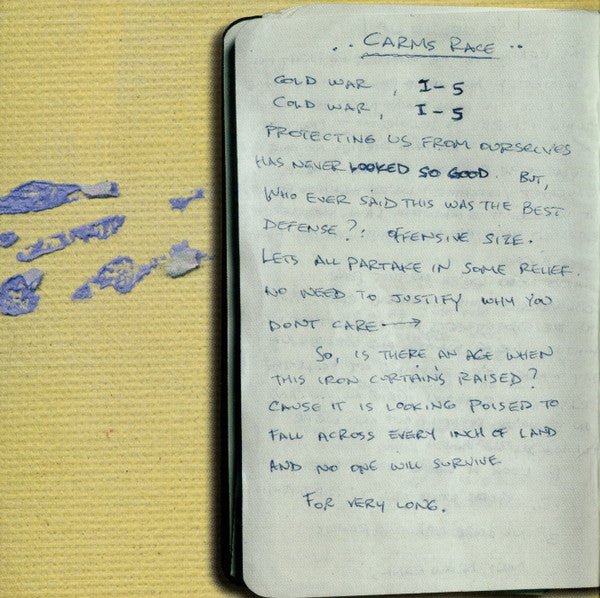 .. CARMS RACE ..
COLD WAR, I-5
COLD WAR, I-5
PROTECTING US FROM OURSELVES
HAS NEVER LOOKED SO GOOD. BUT,
WHO EVER SAID THIS WAS THE BEST
DEFENSE?. OFFENSIVE SIZE.
LETS ALL PARTAKE IN SOME RELIEF.
NO NEED TO JUSTIFY WHY YOU
DONT CARE →
SO, IS THERE AN AGE WHEN
THIS IRON CURTAIN'S RAISED?
CAUSE IT IS LOOKING POISED TO
FALL ACROSS EVERY INCH OF LAND
AND NO ONE WILL SURVIVE
FOR VERY LONG.